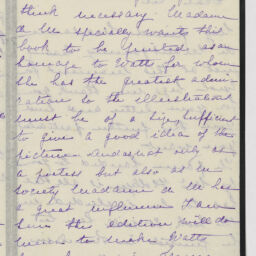 think necessary. Madame
de M specially wants this
book to be printed as an
homage to Watts for whom
she has the greatest admi-
ration so the illustrations
must be of a size sufficient
to give a good idea of the
picture. And as not only as
a poetess but also as in
society Madame de M has
a great influence I am
sure this edition will do
much to make Watts